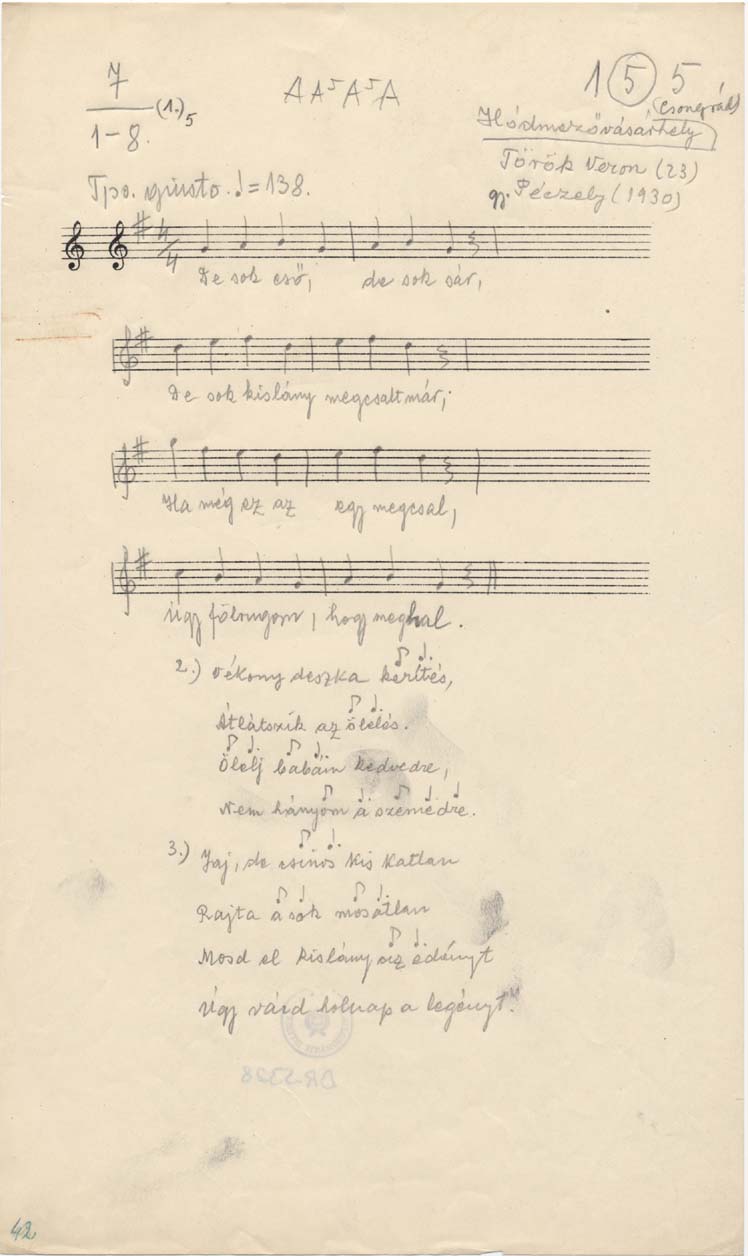 7
1-8. (1.)5
A A⁵ A⁵ A
1 5 5
(Csongrád)
Hódmezővásárhely
Török Veron (23)
gy. Péczely (1930)
Tpo. giusto. ♩=138.
4/4
De sok cső, de sok sár,
De sok kislány megcsalt már,
Ha még ez az egy megcsal,
Úgy fölrúgom, hogy meghal.
2.) Vékony deszka kerítés,
Átlátszik az ölelés.
Ölelj babám kedvedre,
Nem hányom a szemedre.
3.) Jaj, de csinos kis katlan
Rajta a sok mosatlan
Mosd el kislány az edényt
Úgy várd holnap a legényt."
BR-5328
42